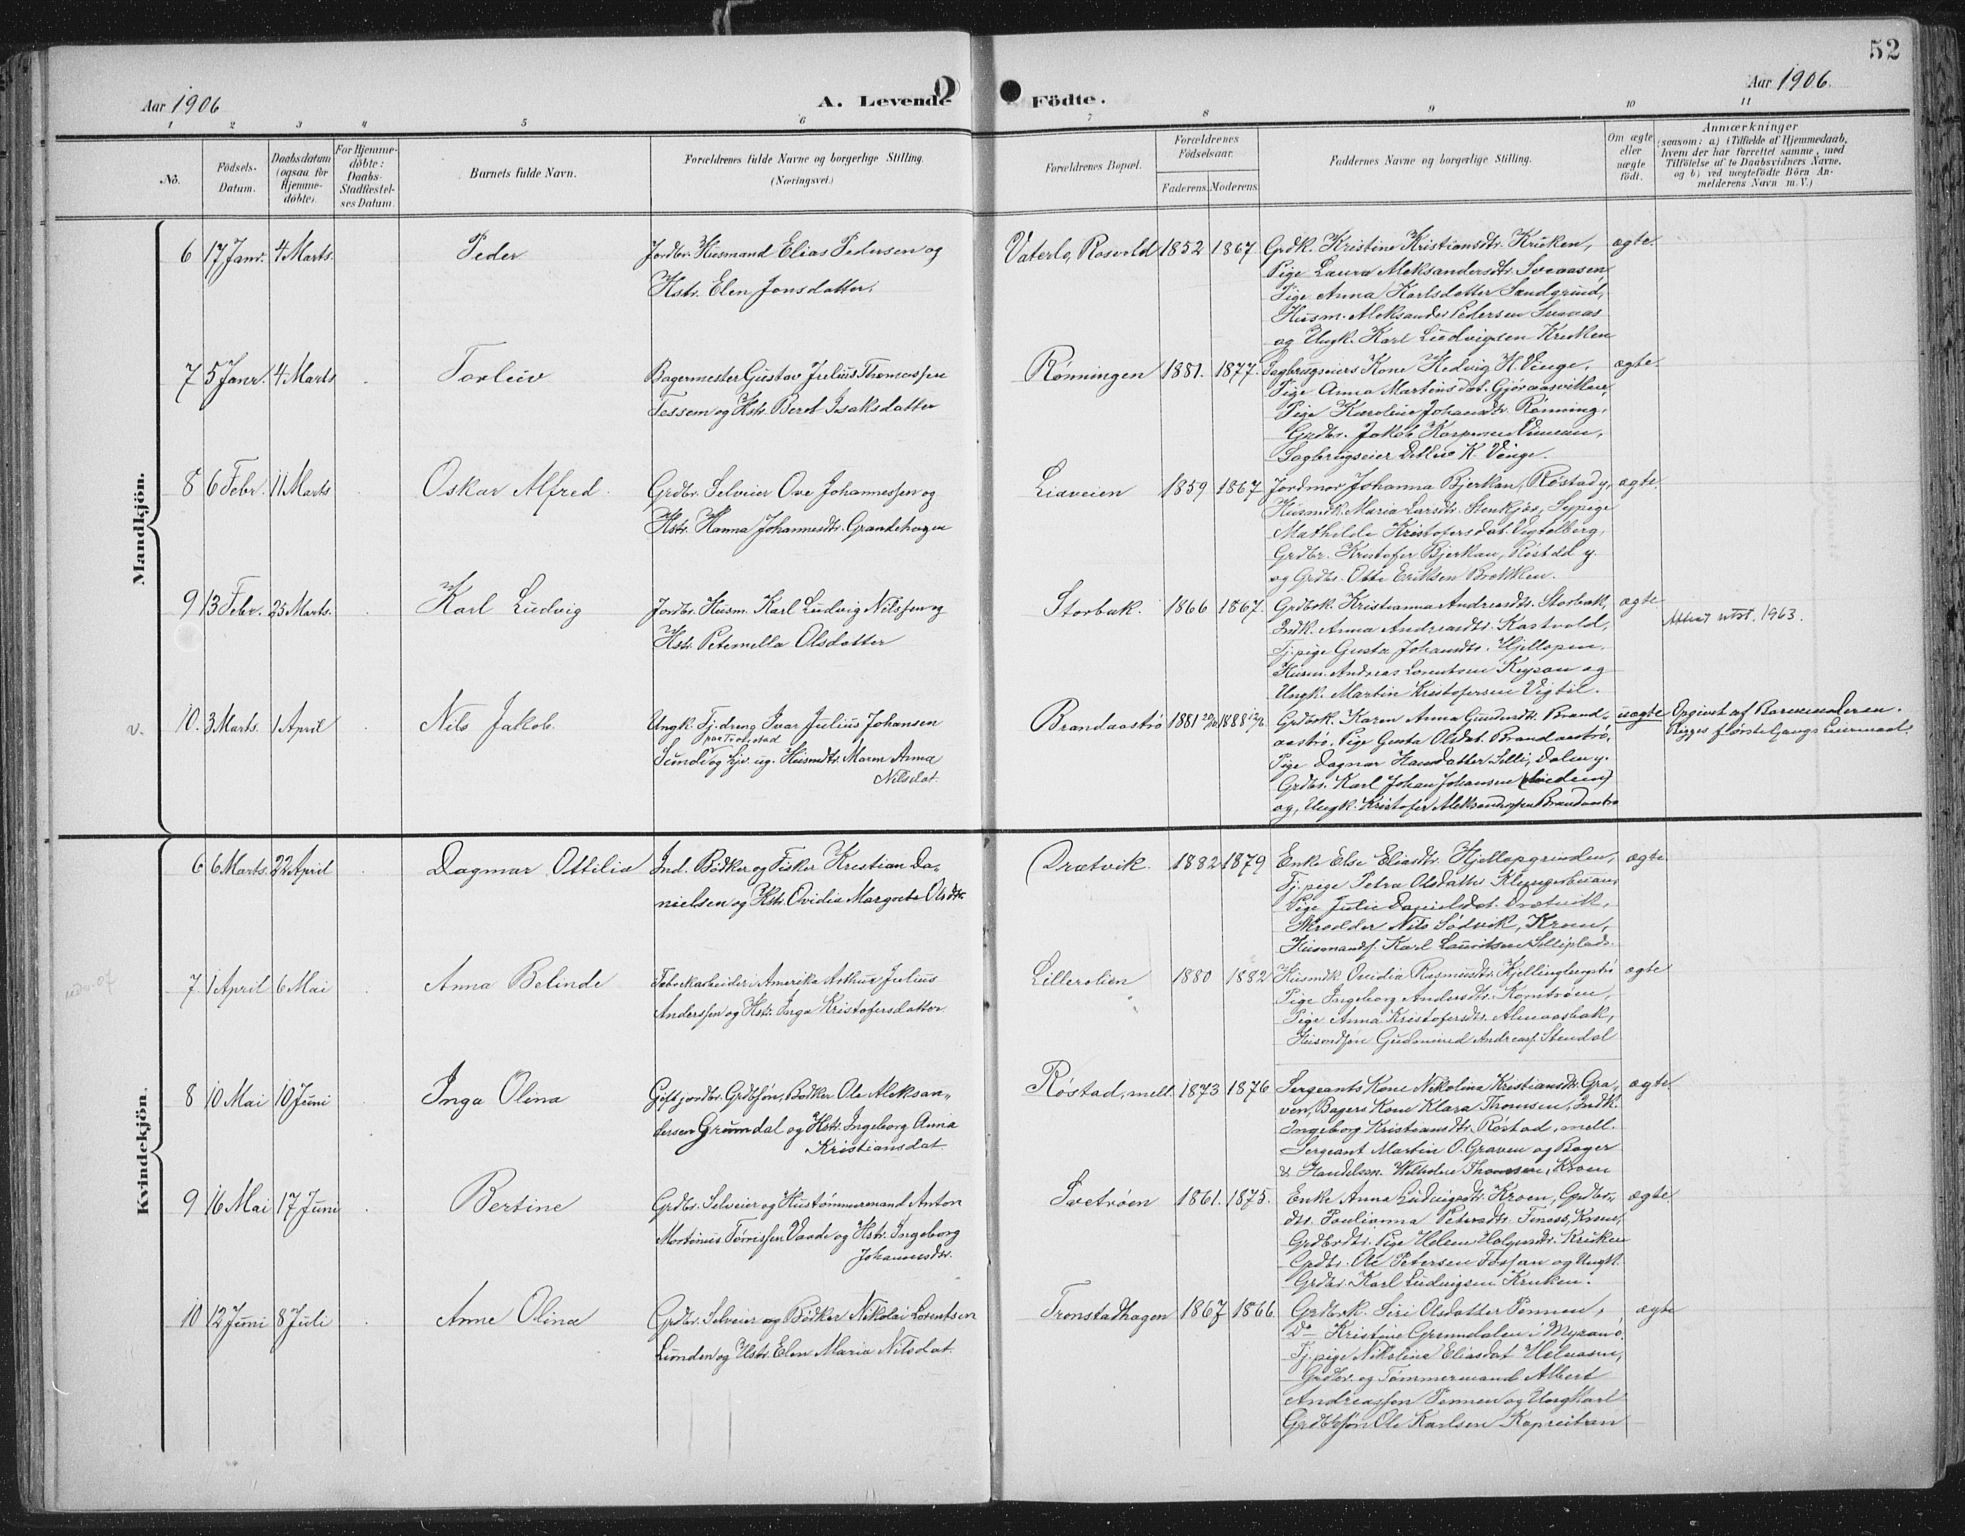 52
Aar 1906
A. Levende Födte.
Aar 1906.
1 2 3 4 5 6 7 8 9 10 11
No.
Födsels-
Datum.
Daabsdatum
(ogsaa for
Hjemme-
döbte).
For Hjemme-
döbte:
Daabs-
Stadfæstel-
ses Datum.
Barnets fulde Navn.
Forældrenes fulde Navne og borgerlige Stilling.
(Næringsvei.)
Forældrenes Bopæl.
Forældrenes
Födselsaar.
Faderens. Moderens.
Faddernes Navne og borgerlige Stilling.
Om ægte
eller
uægte
födt.
Anmærkninger
(saasom: a) i Tilfælde af Hjemmedaab,
hvem der har forrettet samme, med
Tilföielse af to Daabsvidners Navne.
og b) ved uægtefödte Börn An-
melderens Navn m. V.)
Mandkjön.
6 17 Janr. 4 Marts. Peder
Jordbr. Husmand Elias Pedersen og
Hstr. Elen Jonsdatter.
Vaterlo, Rosvold 1852 1867
Grdk. Kristine Kristiansdtr. Kruken,
Pige Laura Aleksandersdtr. Svedasen,
Pige Anna Karlsdatter Sandgrind,
Husm. Aleksander Pedersen
og Ungk. Karl Ludvigsen Kruken
ægte.
7 5 Janr. 4 Marts Torleiv
Bagermester Gustav Julius Thomassen
Tessem og Hstr. Beret Isaksdatter
Rønningen 1881. 1877.
Sagbrugseiers Kone Hedvig K. Vinge,
Pige Anna Martinsdat. Gjøraasvikken,
Pige Karoline Johansdtr. Rønning,
Grdbr. Jakob Kaspersen
Sagbrugseier Detlev K. Vinge.
ægte.
8 6 Febr. 11 Marts Oskar Alfred.
Grdbr. Selveier Ove Johannessen og
Hstr. Hanna Johannesdtr. Grandehagen
Liaveien 1859 1867
Jordmor Johanna Bjerkan, Røstad y,
Husmdk. Maria Larsdtr. Stenkjøs, Sypige
Mathilde Kristofersdat. Vigtelberg,
Grdbr. Kristofer Bjerkan, Røstad y.
og Grdbr. Otte Eriksen Brekken.
ægte.
9 13 Febr. 25 Marts. Karl Ludvig
Jordbr. Husm. Karl Ludvig Nilssen og
Hstr. Peternella Olsdatter
Storbæk. 1866 1867.
Grdbrk. Kristianna Andreasdtr. Storbæk,
Indk. Anna Andreasdtr. Kastvold,
Tj.pige Gusta Johansdtr. Hjellopen.
Husm. Andreas Lorentsen Reysan og
Ungk. Martin Kristofersen Vigtil.
ægte
Attest utst. 1963.
v. 10. 3 Marts. 1 April Nils Jakob.
Ungk. Tj.dreng Ivar Julius Johansen
paa Tronstad
Sund og Husmdtr. Maren Anna
Nilsdat.
Brandaastrø 1881 1888
Grdbrk. Karen Anna Gundersdtr. Brand-
aastrø, Pige Gusta Olsdat. Brandaastrø,
Pige Dagmar Hansdatter Selli, Dalen y.
Grdbr. Karl Johan Johansen
og Ungk. Kristofer Aleksandersen Brandaastrø
uægte
Opgivet af Barnemoderen.
Begges første Gangs Leiermaal.
Kvindekjön.
6 6 Marts. 22 April Dagmar Ottilia
Ind. Bødker og Fisker Kristian Da-
nielsen og Hstr. Ovidia Margrete Olsdtr.
Drætvik. 1882 1879
Enke Else Eliasdtr. Hjellopgrinden,
Tj.pige Petra Olsdatter Klungerbuan,
Pige Julie Danielsdat. Drætvik,
Skrædder Nils Sødvik, Kroen,
Husmands. Karl Lauritsen Selliplads.
ægte
7 1 April 6 Mai Anna Belinde
Fabrikarbeider i Amerika Arthur Julius
Anderssen og Hstr. Inga Kristofersdatter.
Lillerølien 1880 1882
Husmdk. Ovidia Rasmusdtr. Kjellingbergstrø
Pige Ingeborg Andersdtr. Komtrøen,
Pige Anna Kristofersdtr. Almaasbæk,
Husmdsøn Gudmund Andreass. Stendal
ægte
8 10 Mai 10 Juni Inga Olina
Gift jordbr. Grdbsøn, Bødker Ole Aleksan-
dersen Grøndal og Hstr. Ingeborg Anna
Kristiansdat.
Røstad, mell. 1873 1876
Sergeants Kone Nikolina Kristiansdtr. Gra-
ven, Bagers Kone Klara Thomsen, Indk.
Ingeborg Kristiansdtr. Røstad, mell.
Sergeant Martin O. Graven og Bager
& Handelsm. Wilhelm Thomsen, Kroen
ægte
9 16 Mai 17 Juni Bertine
Grdbr. Selveier og Hustømmermand Anton
Mortinus Tørrissen Vaade og Hstr. Ingeborg
Johannesdtr.
Svetrøen 1861. 1875.
Enke Anna Ludvigsdtr. Kroen, Grdbr-
dtr. Paulianna Petersdtr. Finæss, Kroen,
Grdbrdtr. Pige Helene Holgersdtr. Kruken
Grdbr. Ole Petersen Fossan og Ungk.
Grdbr. Karl Ludvigsen Kruken.
ægte
10 12 Juni 8 Juli Anne Olina
Grdbr. Selveier og Bødker Nikolai Lorentsen
Lunden og Hstr. Elen Maria Nilsdat.
Tronstadhagen 1867 1866
Grdbrk. Siri Olsdatter Pennen,
Do Kristine Grøndalen i Myran ö.
Tj.pige Nikoline Eliasdat
Grdbr. og Tømmermand Albert
Andreassen Pennen og Ungkarl
Grdbsøn Ole Karlsen Kapreitan
ægte